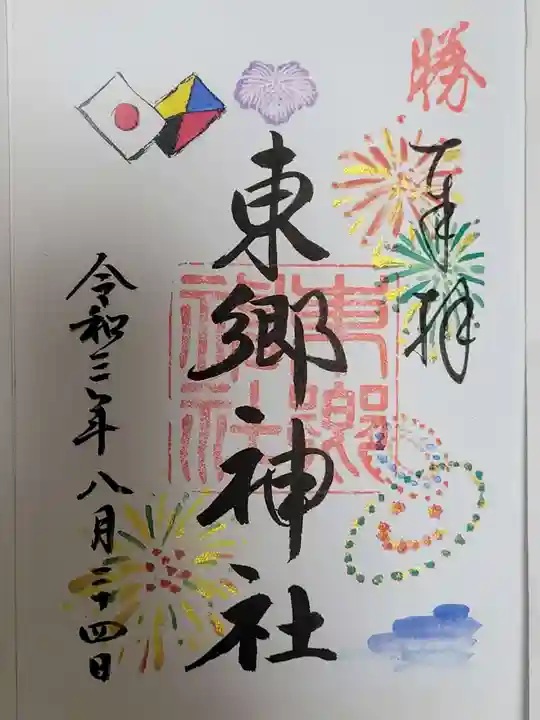 勝
奉拝
東郷神社
東郷神社
令和三年八月二十四日